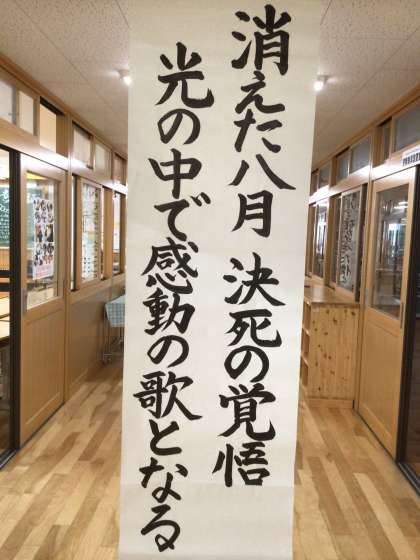 消えた八月 決死の覚悟
光の中で感動の歌となる